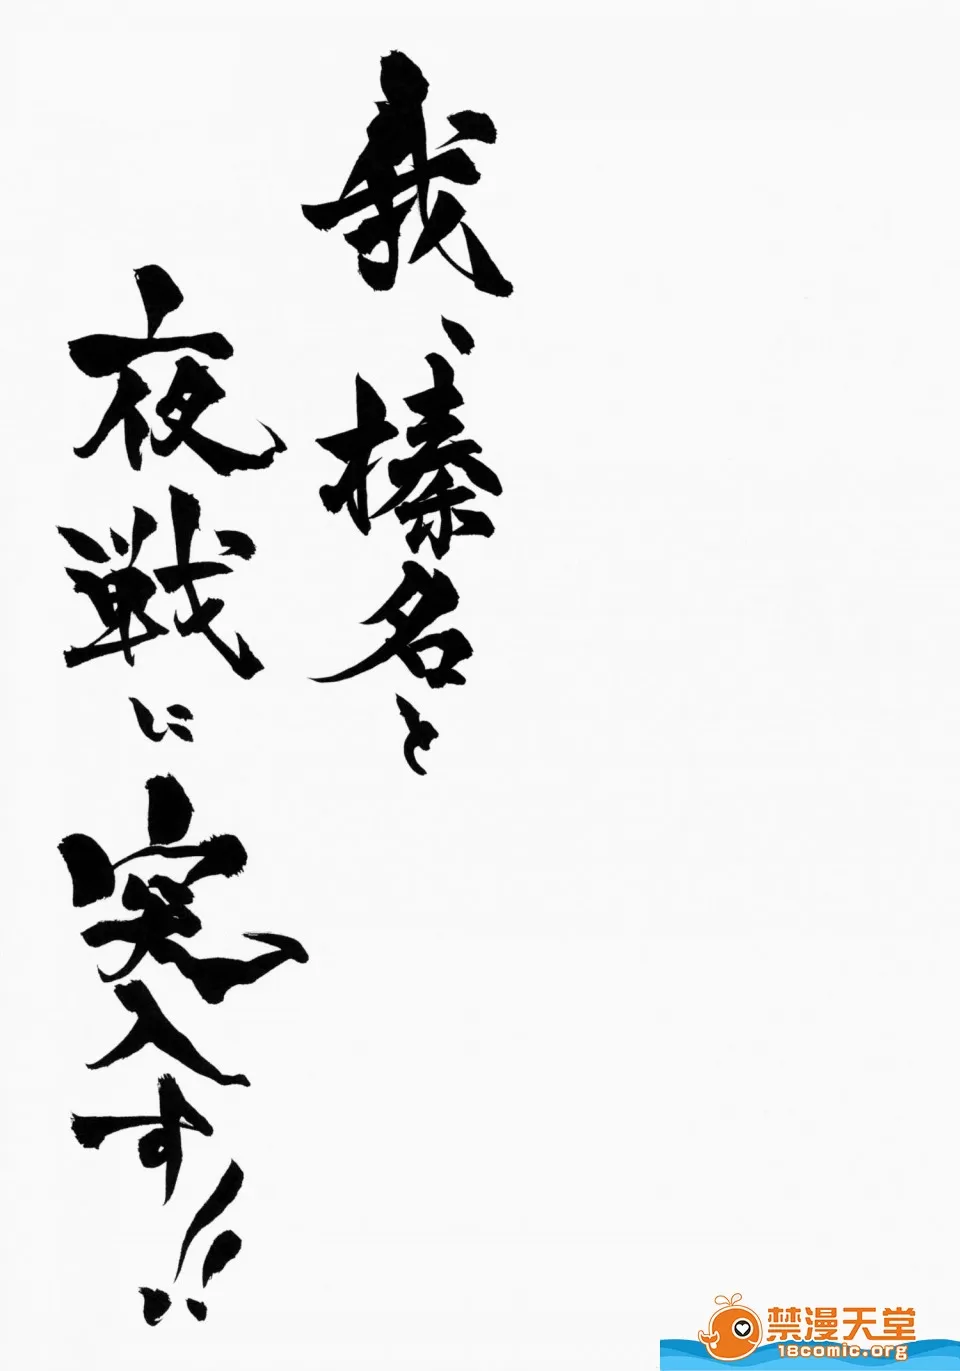 我、榛名と
夜戦に突入す!!
禁漫天堂
18comic.org